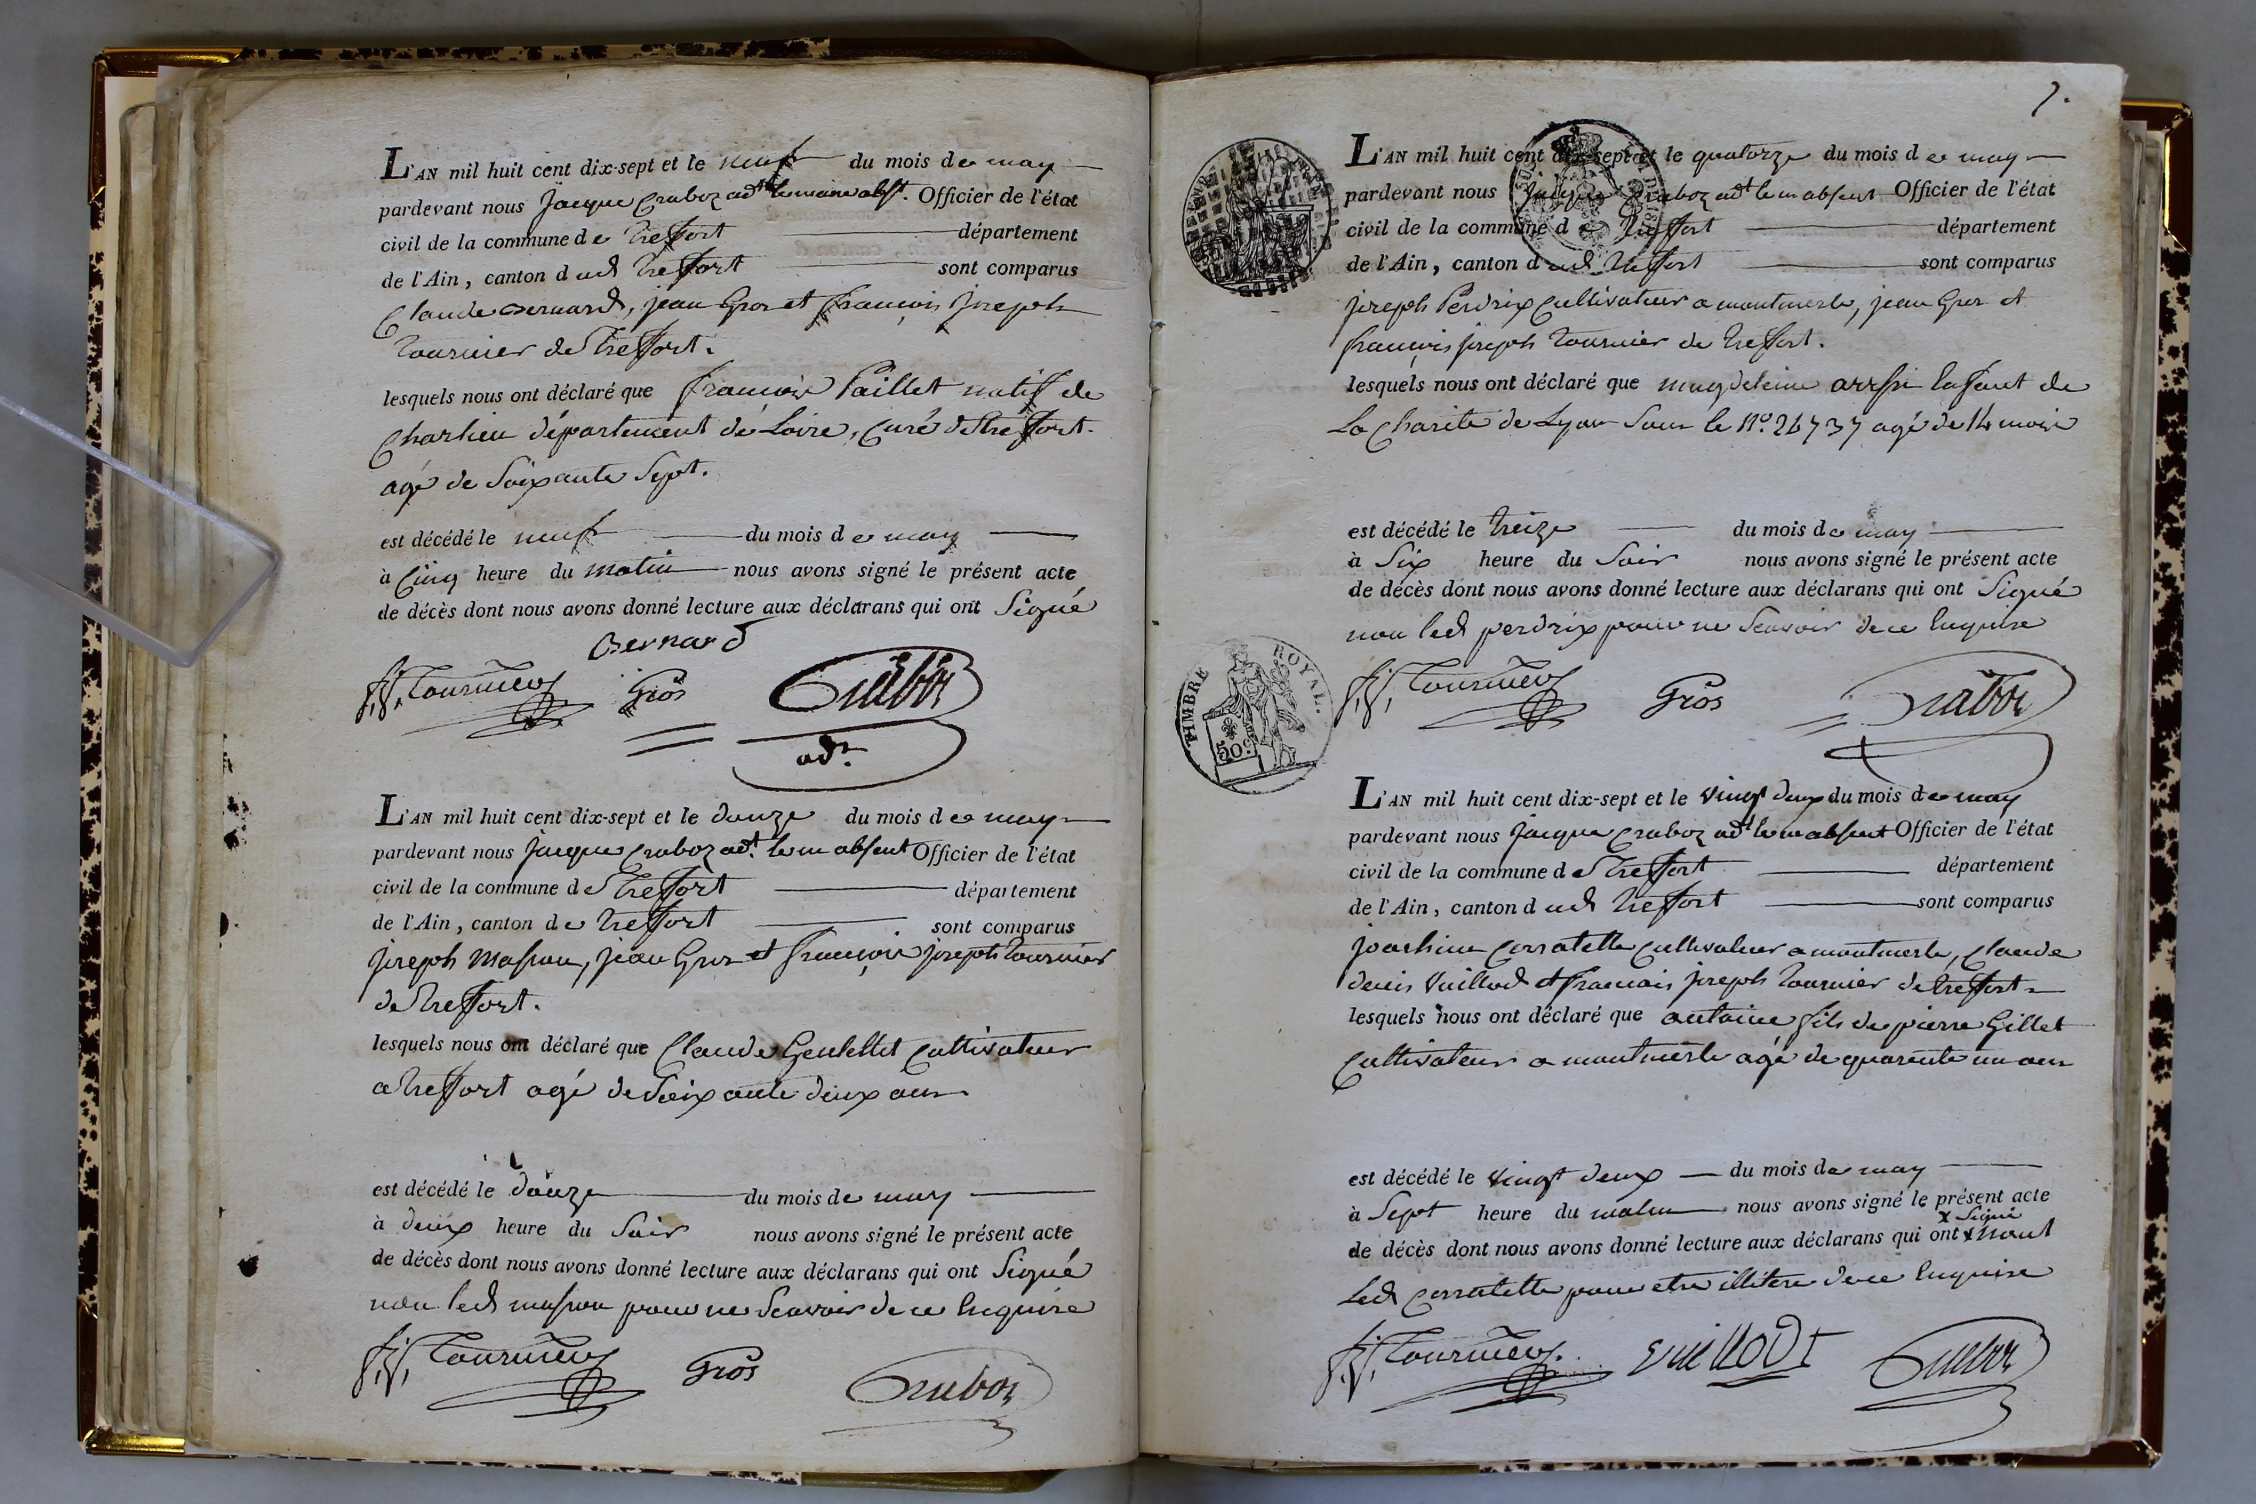 L'AN mil huit cent dix-sept et le neuf du mois de may
pardevant nous Jacque Craboz adt le maire abst. Officier de l'état
civil de la commune de Treffort département
de l'Ain, canton dud Treffort sont comparus
Claude Bernard, jean Gros et François joseph
Tournier de Treffort.
lesquels nous ont déclaré que François Paillet natif de
Charlieu département de Loire, Curé de Treffort.
agé de Soixante Sept.
est décédé le neuf du mois de may
à Cinq heure du matin nous avons signé le présent acte
de décès dont nous avons donné lecture aux déclarans qui ont Signé
Bernard
f.j. Tournier Gros Craboz
adt
L'AN mil huit cent dix-sept et le douze du mois de may
pardevant nous Jacque Craboz adt. le m absent Officier de l'état
civil de la commune de Treffort département
de l'Ain, canton de Treffort sont comparus
joseph Masson, jean Gros et François joseph Tournier
de Treffort.
lesquels nous ont déclaré que Claude Cultivateur
a Treffort agé de Soixante deux ans
est décédé le douze du mois de may
à deux heure du Soir nous avons signé le présent acte
de décès dont nous avons donné lecture aux déclarans qui ont Signé
non led masson pour ne Scavoir de ce Enquire
f.j. Tournier Gros Craboz
7.
L'AN mil huit cent dix-sept et le quatorze du mois de may
pardevant nous Jacque Craboz adt le m absent Officier de l'état
civil de la commune de Treffort département
de l'Ain, canton dud Treffort sont comparus
joseph Perdrix Cultivateur a montmerle, jean Gros et
françois joseph Tournier de Treffort.
lesquels nous ont déclaré que magdeleine enfant de
La Charité de Lyon Sous le No. 24737 agé de 14 mois
est décédé le treize du mois de may
à Six heure du Soir nous avons signé le présent acte
de décès dont nous avons donné lecture aux déclarans qui ont Signé
non led perdrix pour ne Scavoir de ce Enquire
TIMBRE ROYAL.
50c
f.j. Tournier Gros Craboz
L'AN mil huit cent dix-sept et le vingt deux du mois de may
pardevant nous Jacque Craboz adt le m absent Officier de l'état
civil de la commune de Treffort département
de l'Ain, canton dud Treffort sont comparus
joachim Corratelle Cultivateur a montmerle, Claude
denis Vuillod et francois joseph Tournier de Treffort
lesquels nous ont déclaré que antoine fils de pierre Gillet
Cultivateur a montmerle agé de quarante un ans
est décédé le vingt deux du mois de may
à Sept heure du matin nous avons signé le présent acte
x Signé
de décès dont nous avons donné lecture aux déclarans qui ont x nont
Led Corratelle pour etre illitere de ce Enquire
f.j. Tournier Vuillodt Craboz